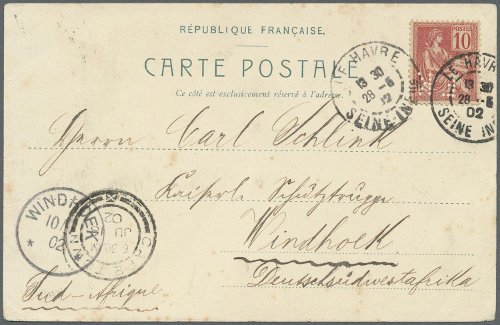 RÉPUBLIQUE FRANÇAISE.
CARTE POSTALE
Ce côté est exclusivement réservé à l'adresse.
POSTES
10
LE HAVRE
13 30
28 -6
02
SEINE INF
LE HAVRE
13 30
28 -6
02
SEINE INF
Herrn Carl Schlink
Kaiserl. Schutztruppe
Windhoek
Deutschsüdwestafrika
Süd-Afrique
WINDHOEK
10
02
*
CAPE TOWN
JU
02